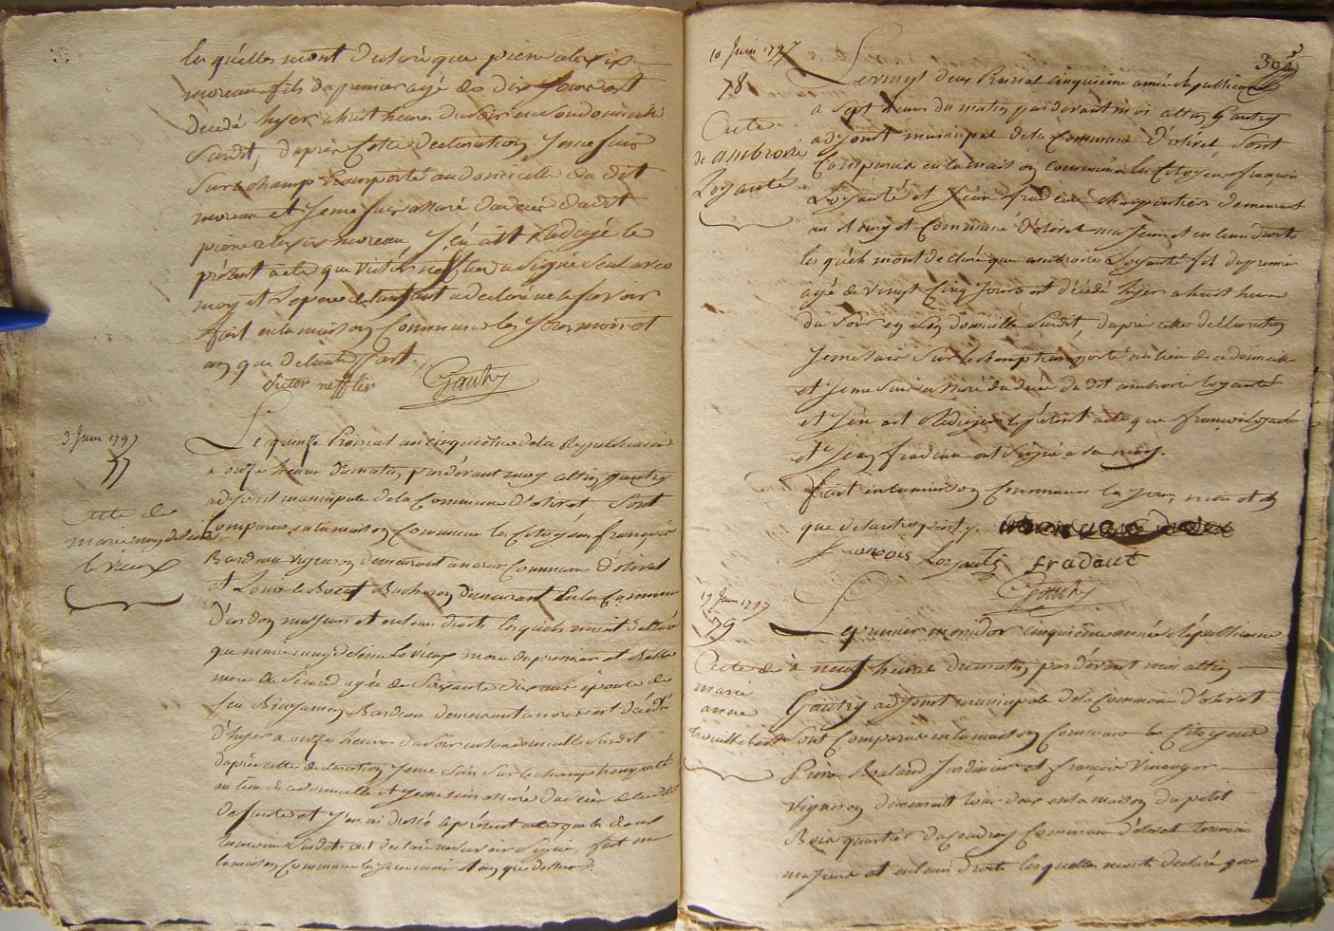 les quelles mont declaré que pierre alexis
moreau fils du premier agé de dix jours est
decedé hyer a huit heures du soir en son domicile
susdit, dapres cette declaration Jeme suis
sur le champ transporté au domicille du dit
moreau et Jeme suis assuré du decès dudit
pierre alexis moreau, J'en ait Redigé le
présent acte que Victor nefflier a signé seul avec
moy et le pere de lenfant a declaré ne le savoir
fait en la maison Commune les Jour mois et
an que delautrepart.
Victor nefflier Gautry
3 Juin 1797
77
acte de
le vieux
Le quinze Prairial an cinquieme de la Republique
a onze heures du matin, pardevant moy altin gautry
adjoint municipale de la Commune d'olivet sont
Comparus en la maison Commune les Citoyens françois
Bardeau vigneron demeurant au Commune d'olivet
et Louis le Bucheron demeurant en la Commune
D'ardon majeurs et en leurs droits lesquels mont declaré
que marie le vieux
agée de soixante dix ans épouse de
feu Bardeau demeurant est decedé
D'hyer a onze heures du soir en son domicille susdit
dapres cette declaration Jeme suis sur le champ transporté
au lieu de ce domicille et Jeme suis assuré du decès de la ditte
et J'en ai dressé le présent acte que les deux
temoins susdits ont declaré ne savoir signer, fait en
la maison Commune les jour mois et an que dessus.
10 Juin 1797
302
78
Acte
de ambroise
Loyauté
Le vingt deux Prairial cinquieme année Républicaine
a sept heures du matin pardevant moi altin Gautry
adjoint municipal de la Commune D'olivet sont
Comparus en la maison commune les Citoyens françois
Loyauté et Jean fradeau charpentier demeurant
au bourg et Commune d'olivet majeurs et en leurs droits
lesquels mont declaré que ambroise Loyauté fils du premier
agé de vingt Cinq Jours est décédé hyer a huit heures
du soir en son domicille susdit, dapres cette déclaration
Jeme suis sur le champ transporté au lieu de ce domicile
et Jeme suis assuré du decès du dit ambroise loyauté
et J'en ait Redigé le présent acte que françois loyauté
et Jean fradeau ont signé avec moy.
fait en la maison Commune les jour, mois et an
que delautrepart.
françois Loyauté fradaut
Gautry
19 Juin 1797
79
Acte de
marie
anne
Le premier messidor cinquieme année Républicaine
a neuf heures du matin, pardevant moi altin
Gautry adjoint municipale de la Commune d'olivet
sont Comparus en la maison Commune les Citoyens
Pierre Rouland Jardinier et françois
vigneron demeurant tous deux en la maison du petit
Bois quartier du Commune d'olivet temoins
majeurs et en leurs droits lesquelles mont declaré que